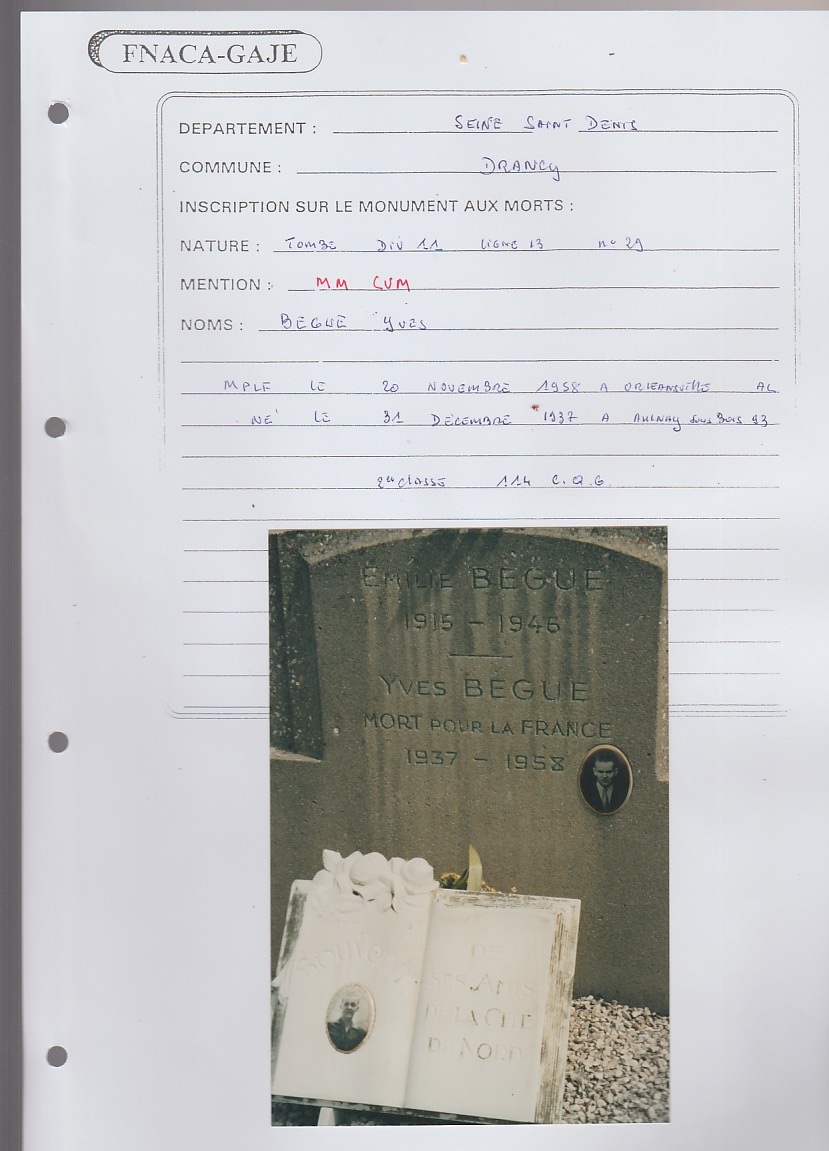 FNACA-GAJE
DEPARTEMENT : SEINE SAINT DENIS
COMMUNE : DRANCY
INSCRIPTION SUR LE MONUMENT AUX MORTS :
NATURE : TOMBE DIV 11 LIGNE 13 n° 29
MENTION : MM CVM
NOMS : BEGUE YVES
MPLF LE 20 NOVEMBRE 1958 A ORLEANSVILLE AL
NÉ LE 31 DÉCEMBRE 1937 A AULNAY Sous Bois 93
2eme CLASSE 114 C.Q.G.
EMILIE BEGUE
1915 - 1946
YVES BEGUE
MORT POUR LA FRANCE
1937 - 1958
SOUVENIR
DE
SES AMIS
DE LA CITÉ
DU NORD